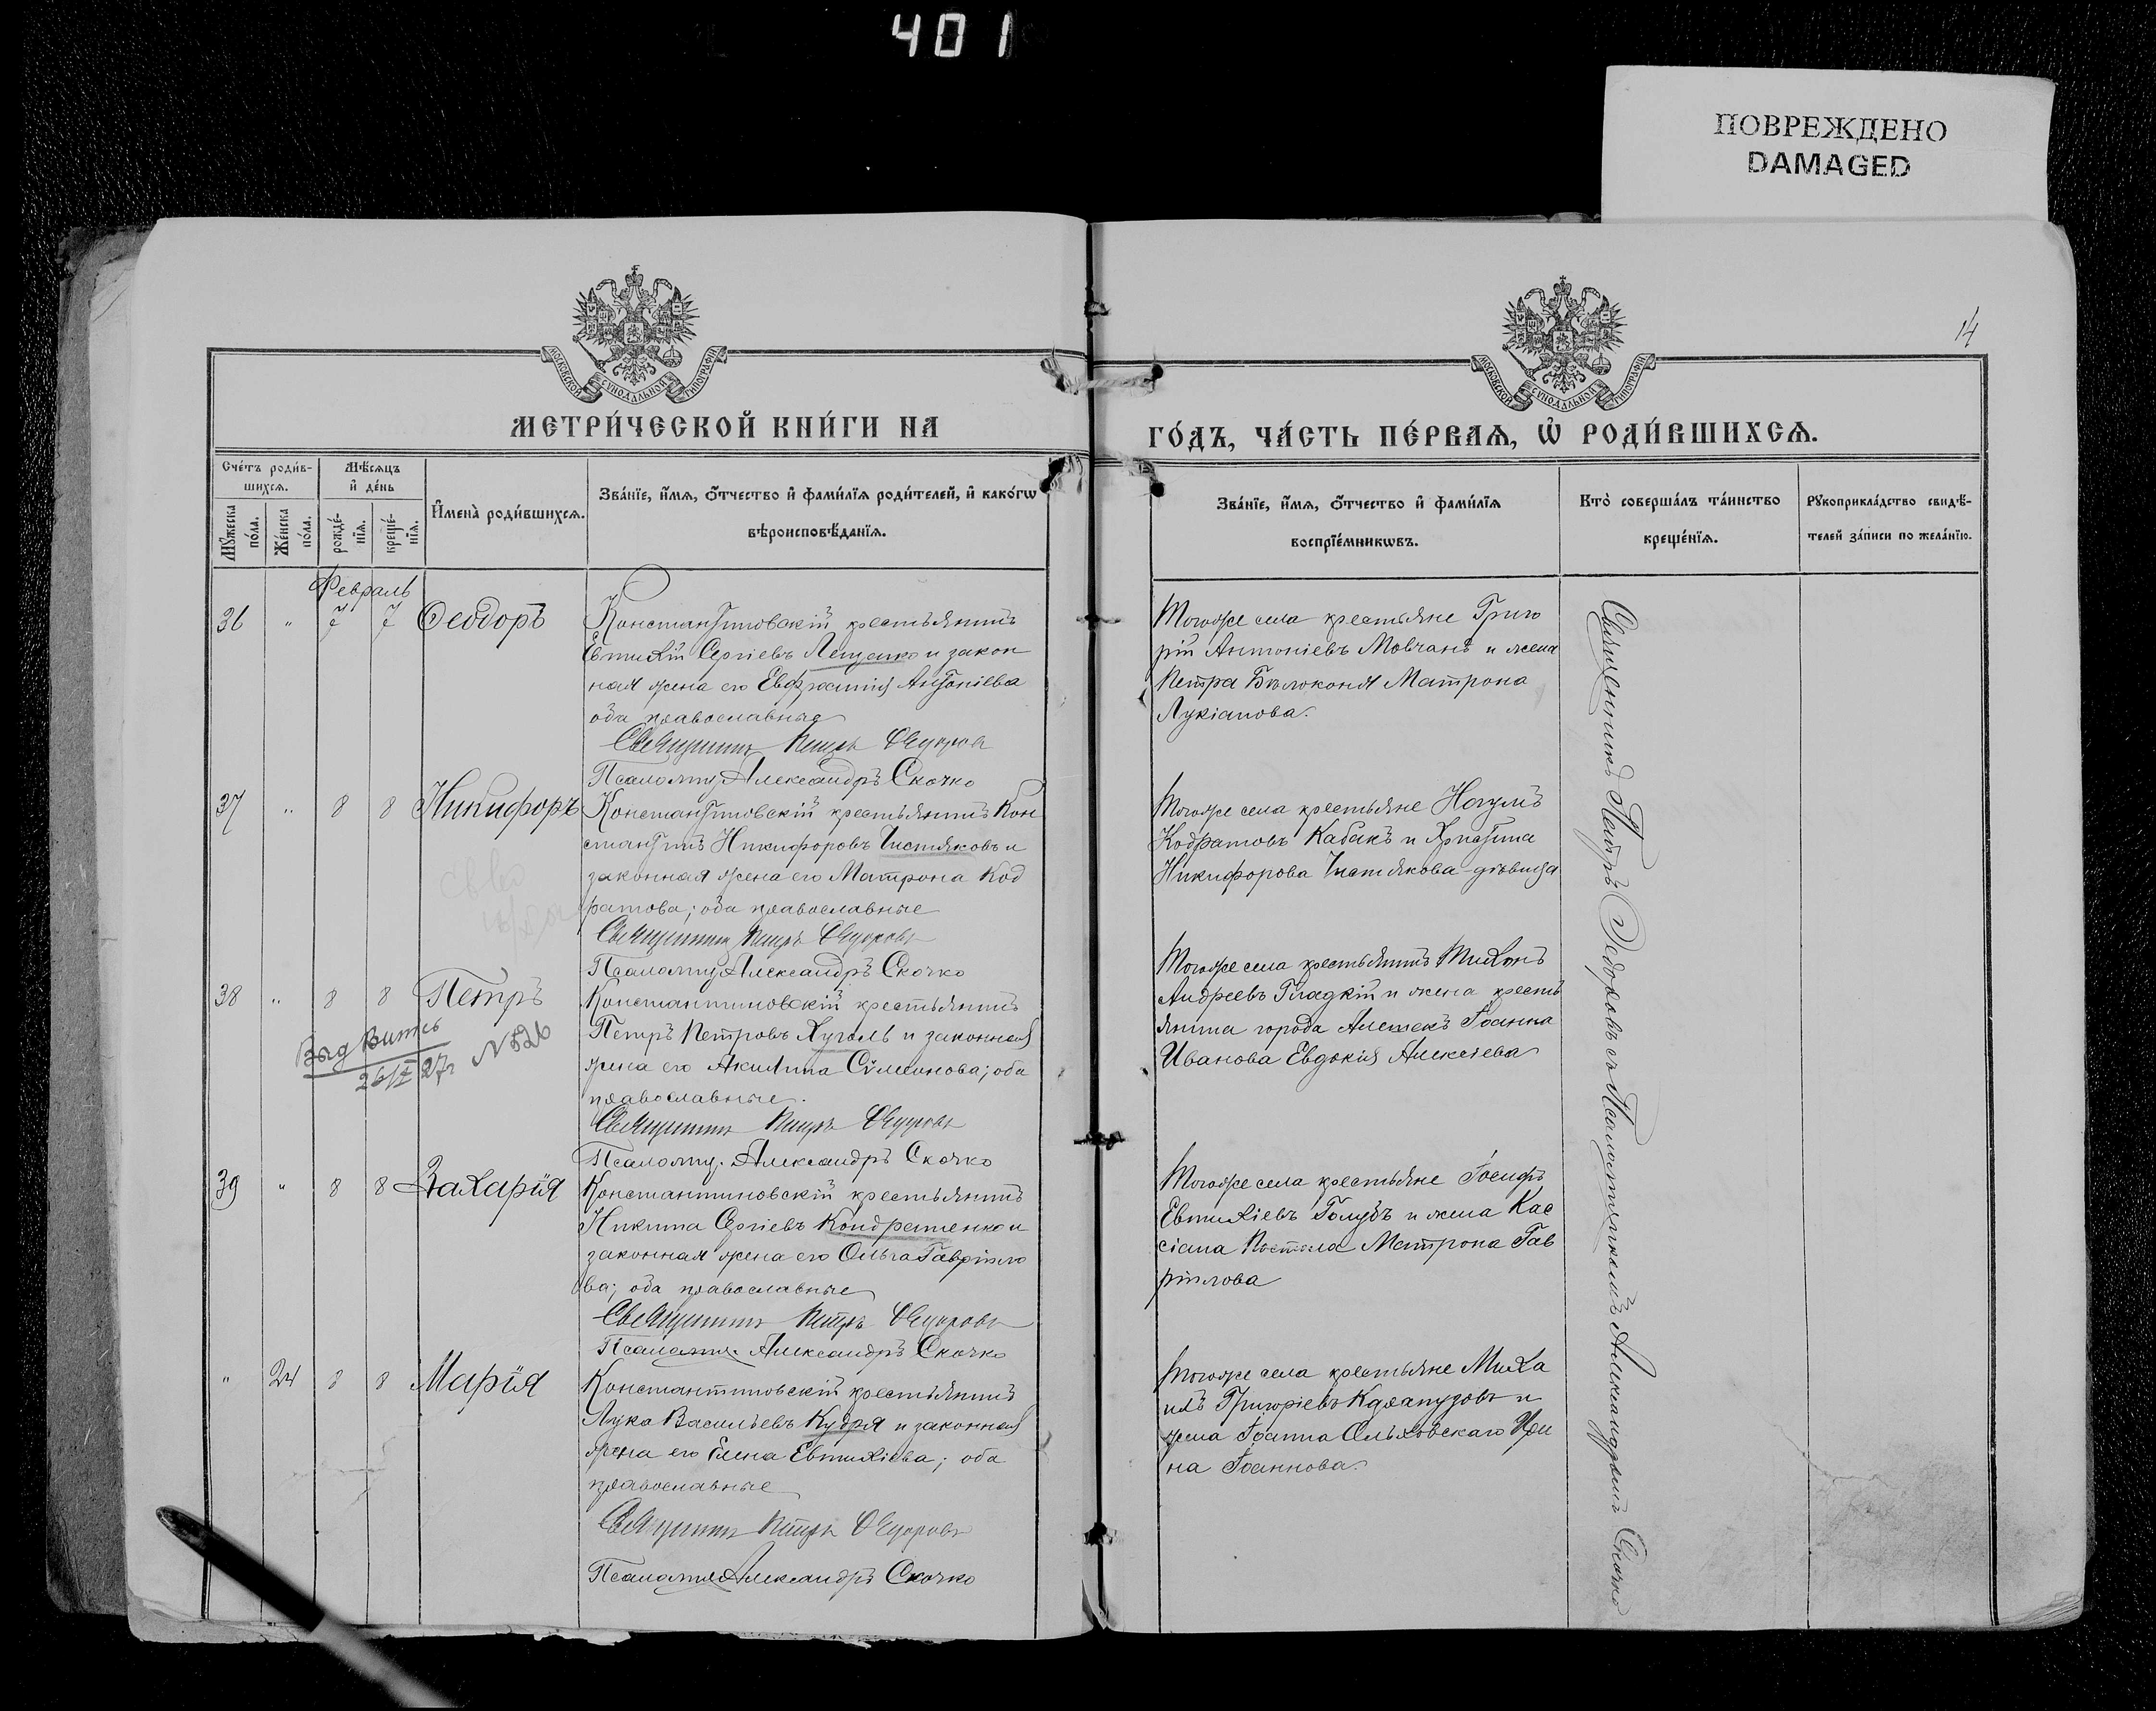 401
ПОВРЕЖДЕНО
DAMAGED
14
МОСКОВСКОЙ СѴНОДАЛЬНОЙ ТИПОГРАФІИ
МОСКОВСКОЙ СѴНОДАЛЬНОЙ ТИПОГРАФІИ
МЕТРИ́ЧЕСКОЙ КНИ́ГИ НА
ГО́ДЪ, ЧА́СТЬ ПЕ́РВАѦ, Ѡ҆ РОДИ́ВШИХСѦ.
Сче́тъ роди́в-
шихсѧ.
Мѣ́сѧцъ
и҆ де́нь
Мꙋ́жеска
по́ла.
Же́нска
по́ла.
рожде́-
нїѧ.
креще́-
нїѧ.
И҆мена̀ роди́вшихсѧ.
Зва́нїе, и҆́мѧ, ѻ҆́тчество и҆ фами́лїѧ роди́телей, и҆ како́гѡ
вѣроисповѣ́данїѧ.
Зва́нїе, и҆́мѧ, ѻ҆́тчество и҆ фами́лїѧ
воспрїе́мникѡвъ.
Кто̀ соверша́лъ та́инство
креще́нїѧ.
Рꙋкоприкла́дство свидѣ́-
телей за́писи по жела́нїю.
Февраль
36 " 7 7 Ѳеодоръ
Константиновскій крестьянинъ
Евтихій Сергіевъ Лещенко и закон
ная жена его Евфросинія Антоніева
оба православные
Священникъ Петръ Ѳедоровъ
Псаломщ. Александръ Скочко
Тогоже села крестьяне Григо
рій Антоніевъ Мовчанъ и жена
Петра Бѣлоконя Матрона
Лукіанова.
37 " 8 8 Никифоръ
Константиновскій крестьянинъ Кон
стантинъ Никифоровъ Чистяковъ и
законная жена его Матрона Код
ратова; оба православные
Священникъ Петръ Ѳедоровъ
Псаломщ. Александръ Скочко
Тогоже села крестьяне Наумъ
Кодратовъ Кабакъ и Христина
Никифорова Чистякова-дѣвица
38 " 8 8 Петръ
Выд Витсь
26/I 27г N 526
Константиновскій крестьянинъ
Петръ Петровъ Хуголь и законная
жена его Акилина Сѵмеонова; оба
православные.
Священникъ Петръ Ѳедоровъ
Псаломщ. Александръ Скочко
Тогоже села крестьянинъ Тихонъ
Андреевъ Гладкій и жена кресть
янина города Алешекъ Іоанна
Иванова Евдокія Алексіева
39 " 8 8 Захарія
Константиновскій крестьянинъ
Никита Сергіевъ Кондратенко и
законная жена его Ольга Гавріило
ва; оба православные
Священникъ Петръ Ѳедоровъ
Псаломщ. Александръ Скочко
Тогоже села крестьяне Іосифъ
Евтихіевъ Голубъ и жена Кас
сіана Постола Матрона Гав
ріилова
" 24 8 8 Марія
Константиновскій крестьянинъ
Лука Васильевъ Кудря и законная
жена его Елена Евтихіева; оба
православные
Священникъ Петръ Ѳедоровъ
Псаломщ. Александръ Скочко
Тогоже села крестьяне Миха
илъ Григоріевъ и
жена Іоанна Ольховскаго Ири
на Іоаннова.
Священникъ Петръ Ѳедоровъ съ Псаломщикомъ Александромъ Скочко